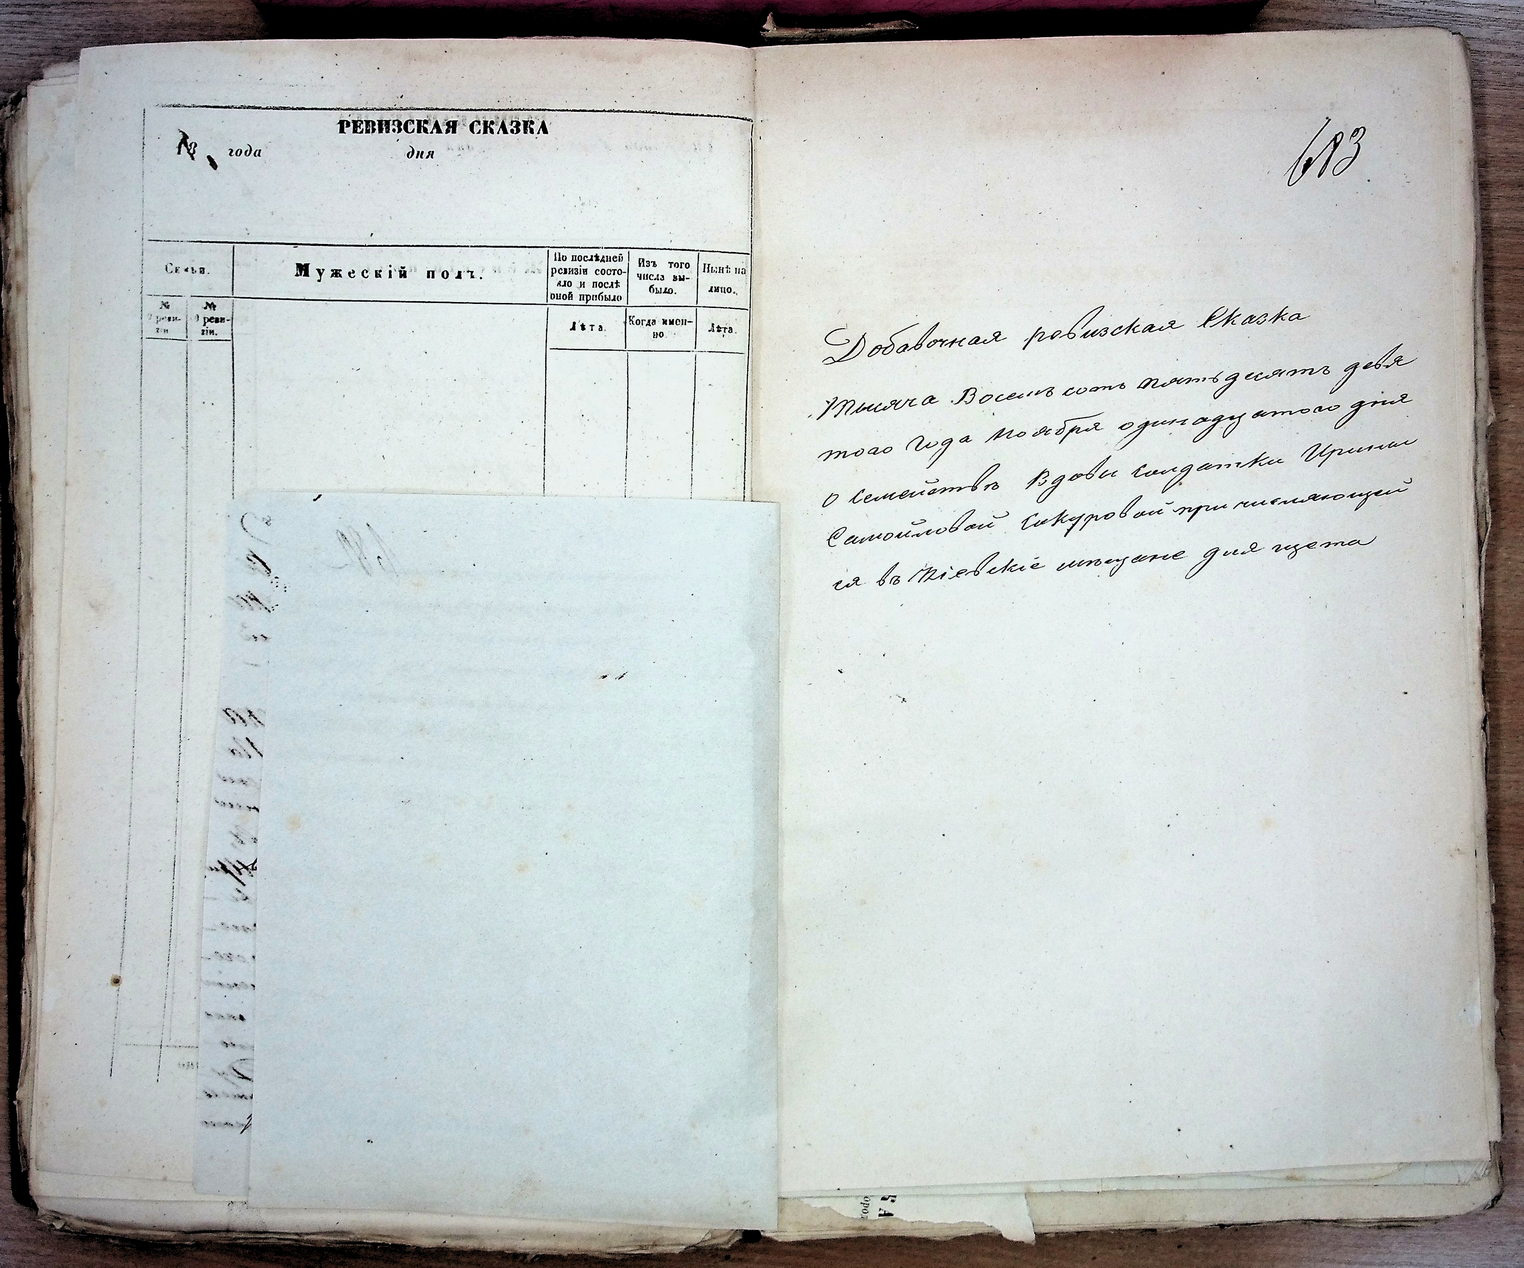 РЕВИЗСКАЯ СКАЗКА
18 года дня
Семьи.
Мужескій полъ.
По послѣдней ревизіи состояло и послѣ оной прибыло
Изъ того числа выбыло.
Нынѣ на лицо.
№ ревизіи.
№ ревизіи.
Лѣта.
Когда именно
Лѣта.
682
683
Добавочная ревизская Сказка
Тысяча Восемь сотъ пятьдесятъ девя
того Года Ноября одинадцатого дня
о Семействѣ Вдовы Солдатки Ирины
Самойловой причисляющей
ся въ Кіевскіе мещане для щета